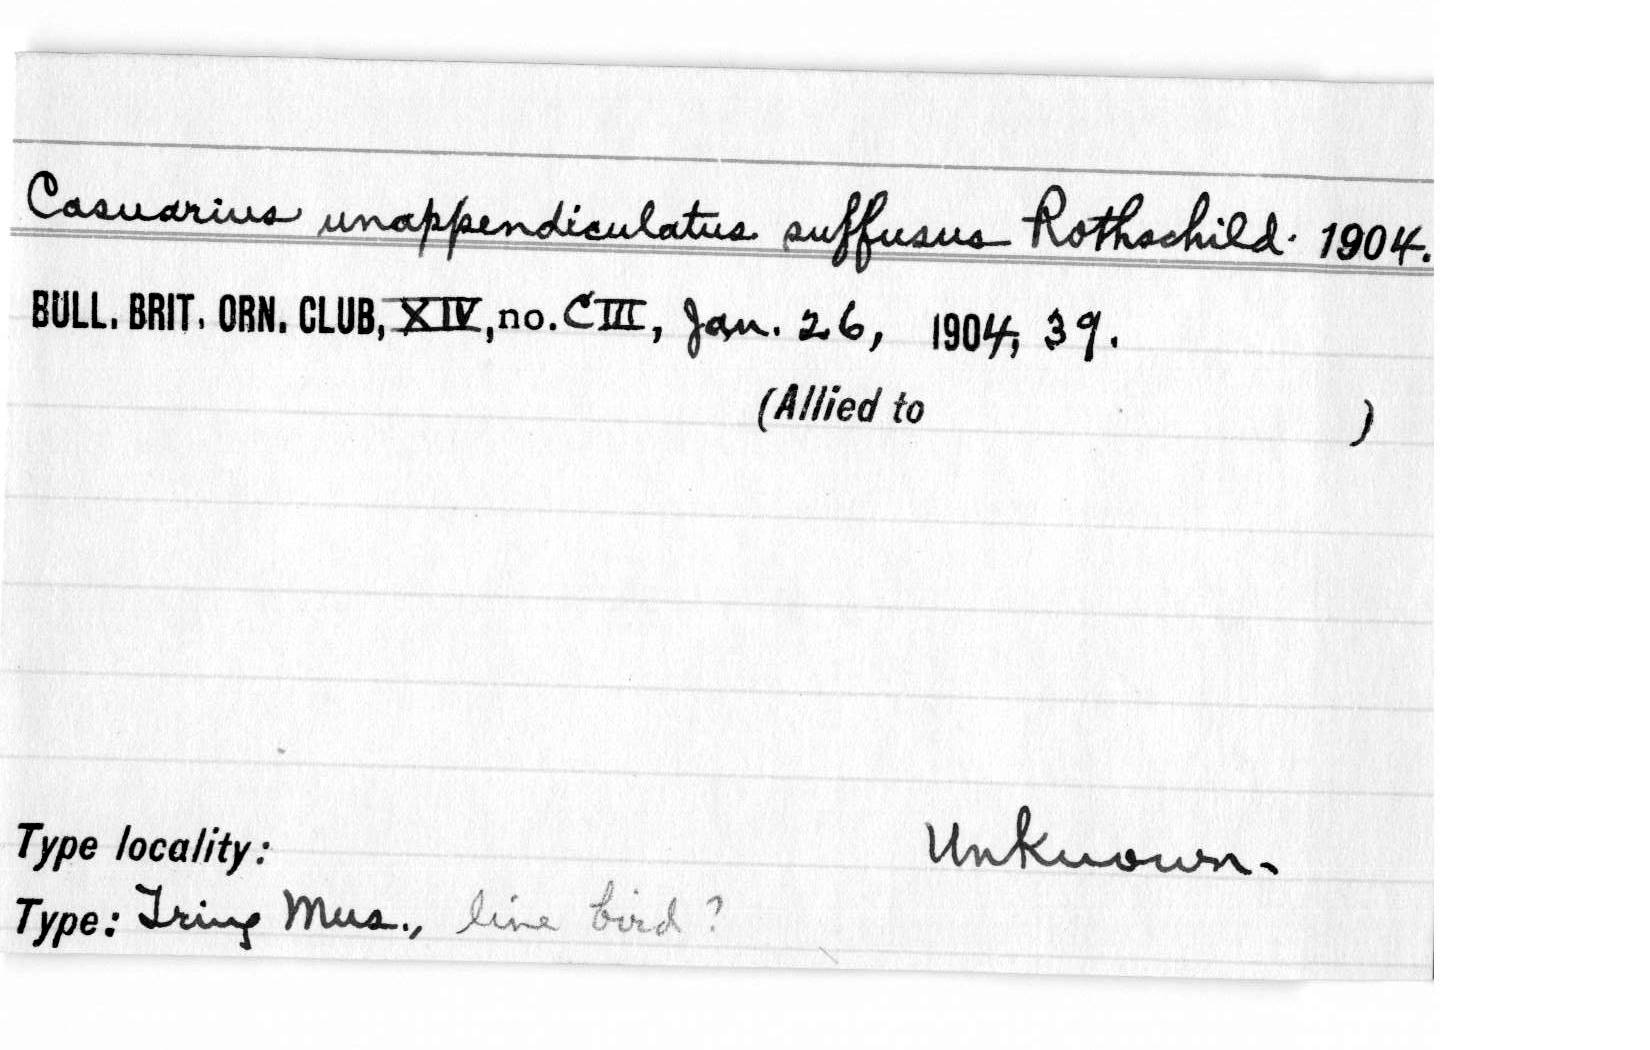 Casuarius unappendiculatus suffusus Rothschild. 1904.
BULL. BRIT. ORN. CLUB, XIV, no. CIII, Jan. 26, 1904, 39.
(Allied to )
Type locality: Unknown.
Type: Tring Mus., live bird?